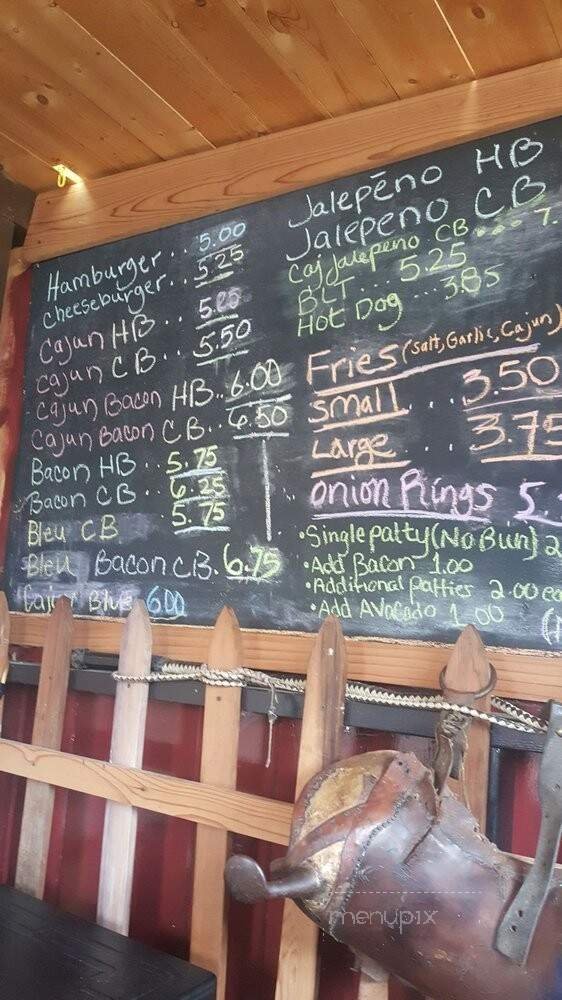 Hamburger .. 5.00
Cheeseburger .. 5.25
Cajun HB .. 5.25
Cajun CB .. 5.50
Cajun Bacon HB .. 6.00
Cajun Bacon CB .. 6.50
Bacon HB .. 5.75
Bacon CB .. 6.25
Bleu CB 5.75
Bleu Bacon CB. 6.75
Cajun Blue 6.00
Jalepēno HB
Jalepeno CB
Caj Jalepeno CB ... 7.
BLT ... 5.25
Hot Dog ... 3.85
Fries (Salt, Garlic, Cajun)
Small ... 3.50
Large .. 3.75
Onion Rings 5.
• Single patty (No Bun) 2
• Add Bacon 1.00
• Additional patties 2.00
• Add Avocado 1.00
menupix